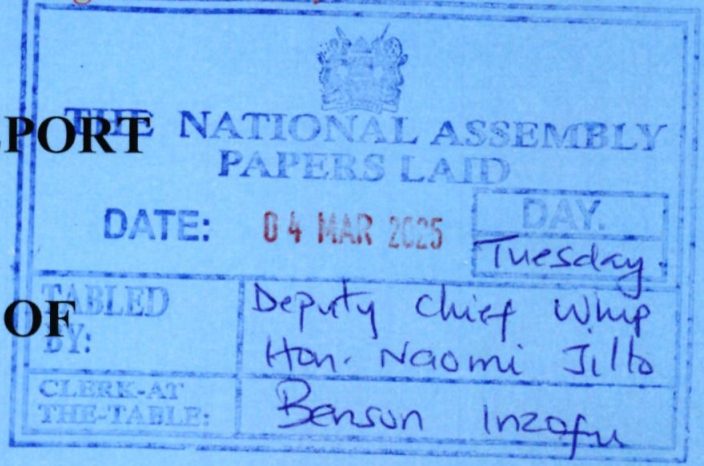 REPORT
THE NATIONAL ASSEMBLY
PAPERS LAID
DATE: 04 MAR 2025
DAY.
Tuesday.
OF
TABLED BY:
Deputy Chief Whip
Hon. Naomi Jillo
CLERK-AT THE-TABLE:
Benson Inzofu